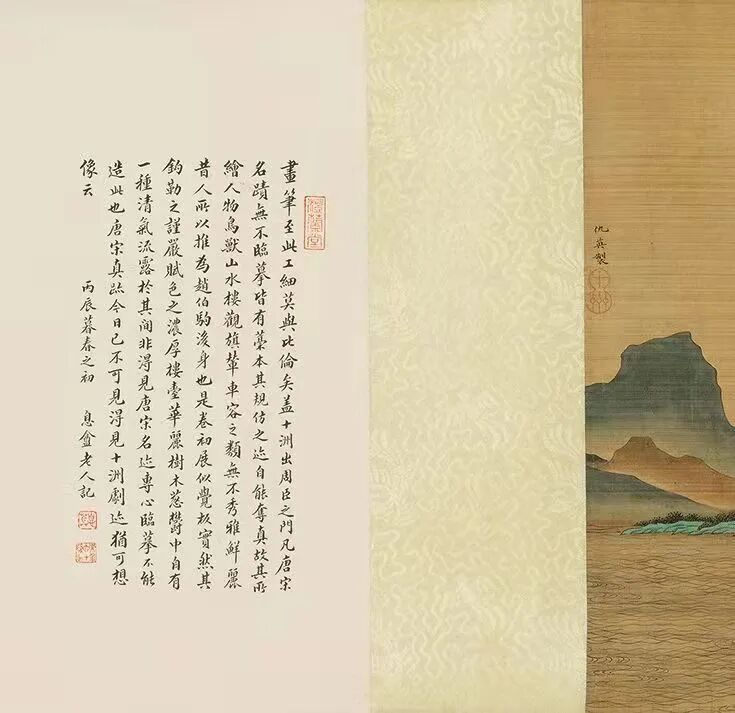 仇英製
十洲
畫筆至此工細莫與比倫矣蓋十洲出周臣之門凡唐宋
名蹟無不臨摹皆有藁本其規仿之迹自能奪真故其所
繪人物鳥獸山水樓觀旗輦車容之類無不秀雅鮮麗
昔人所以推為趙伯駒後身也是卷初展似覺板實然其
鈎勒之謹嚴賦色之濃厚樓臺華麗樹木蔥鬱中自有
一種清氣流露於其間非得見唐宋名迹專心臨摹不能
造此也唐宋真跡今日已不可見得見十洲劇迹猶可想
像云 丙辰暮春之初 息盦老人記